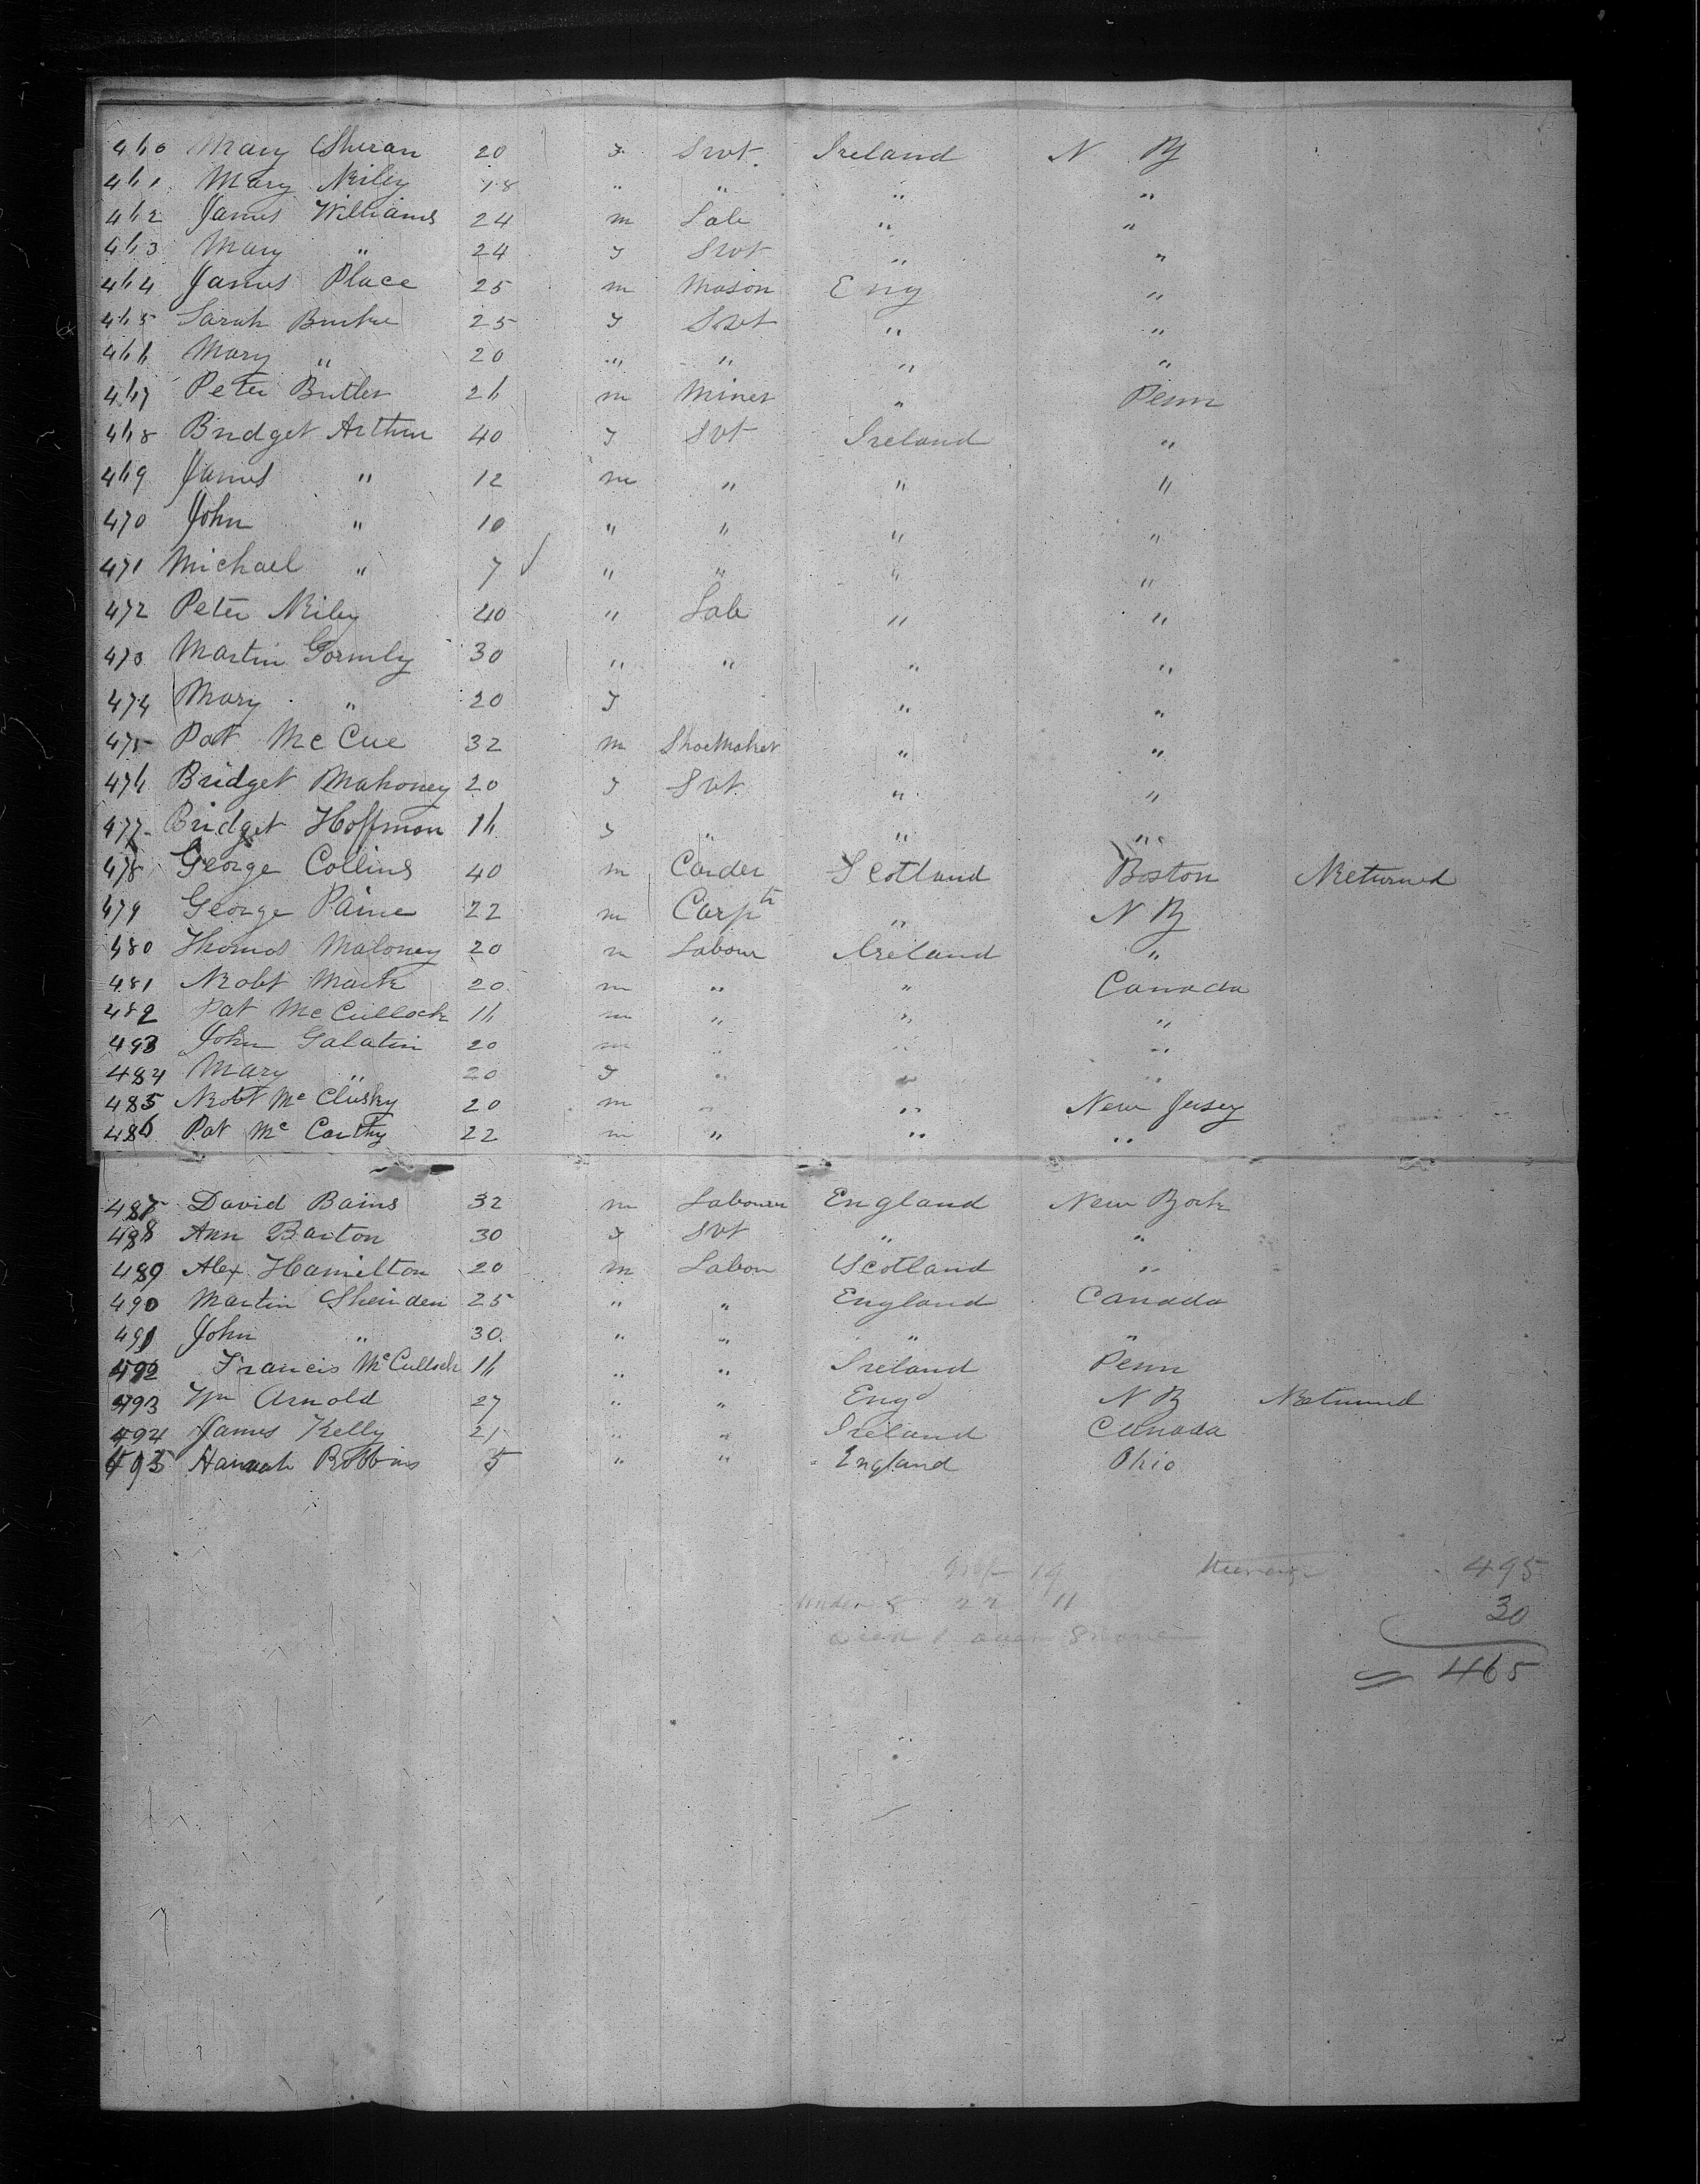 460 Mary Sheran 20 F Svt. Ireland N Y
461 Mary Riley 18 " " " "
462 James Williams 24 m Lab " "
463 Mary " 24 F Svt " "
464 James Place 25 m Mason Eng "
465 Sarah Burke 25 F Svt " "
466 Mary " 20 " " " "
467 Peter Butler 26 m Miner " Penn
468 Bridget Arthur 40 F Svt Ireland "
469 James " 12 m " " "
470 John " 10 " " " "
471 Michael " 7 √ " " " "
472 Peter Riley 40 " Lab " "
473 Martin Gormly 30 " " " "
474 Mary " 20 F " "
475 Pat McCue 32 m Shoemaker " "
476 Bridget Mahoney 20 F Svt. " "
477 Bridget Hoffman 16 F " " "
478 George Collins 40 m Carder Scotland Boston Returned
479 George Paine 22 m Carptr " N Y
480 Thomas Maloney 20 m Labour Ireland "
481 Robt Mark 20 m " " Canada
482 Pat McCullock 16 m " " "
483 John Galatin 20 m " " "
484 Mary " 20 F " " "
485 Robt McClusky 20 m " " New Jersey
486 Pat McCarthy 22 m " " "
487 David Bains 32 m Labourer England New York
488 Ann Barton 30 F Svt " "
489 Alex Hamilton 20 m Labour Scotland "
490 Martin Sheriden 25 " " England Canada
491 John " 30 " " " "
492 Francis McCullock 16 " " Ireland Penn
493 Wm Arnold 27 " " Engd N Y Returned
494 James Kelly 21 " " Ireland Canada
495 Hannah Robbins 5 " " England Ohio
19 495
under 8 22 11 30
465